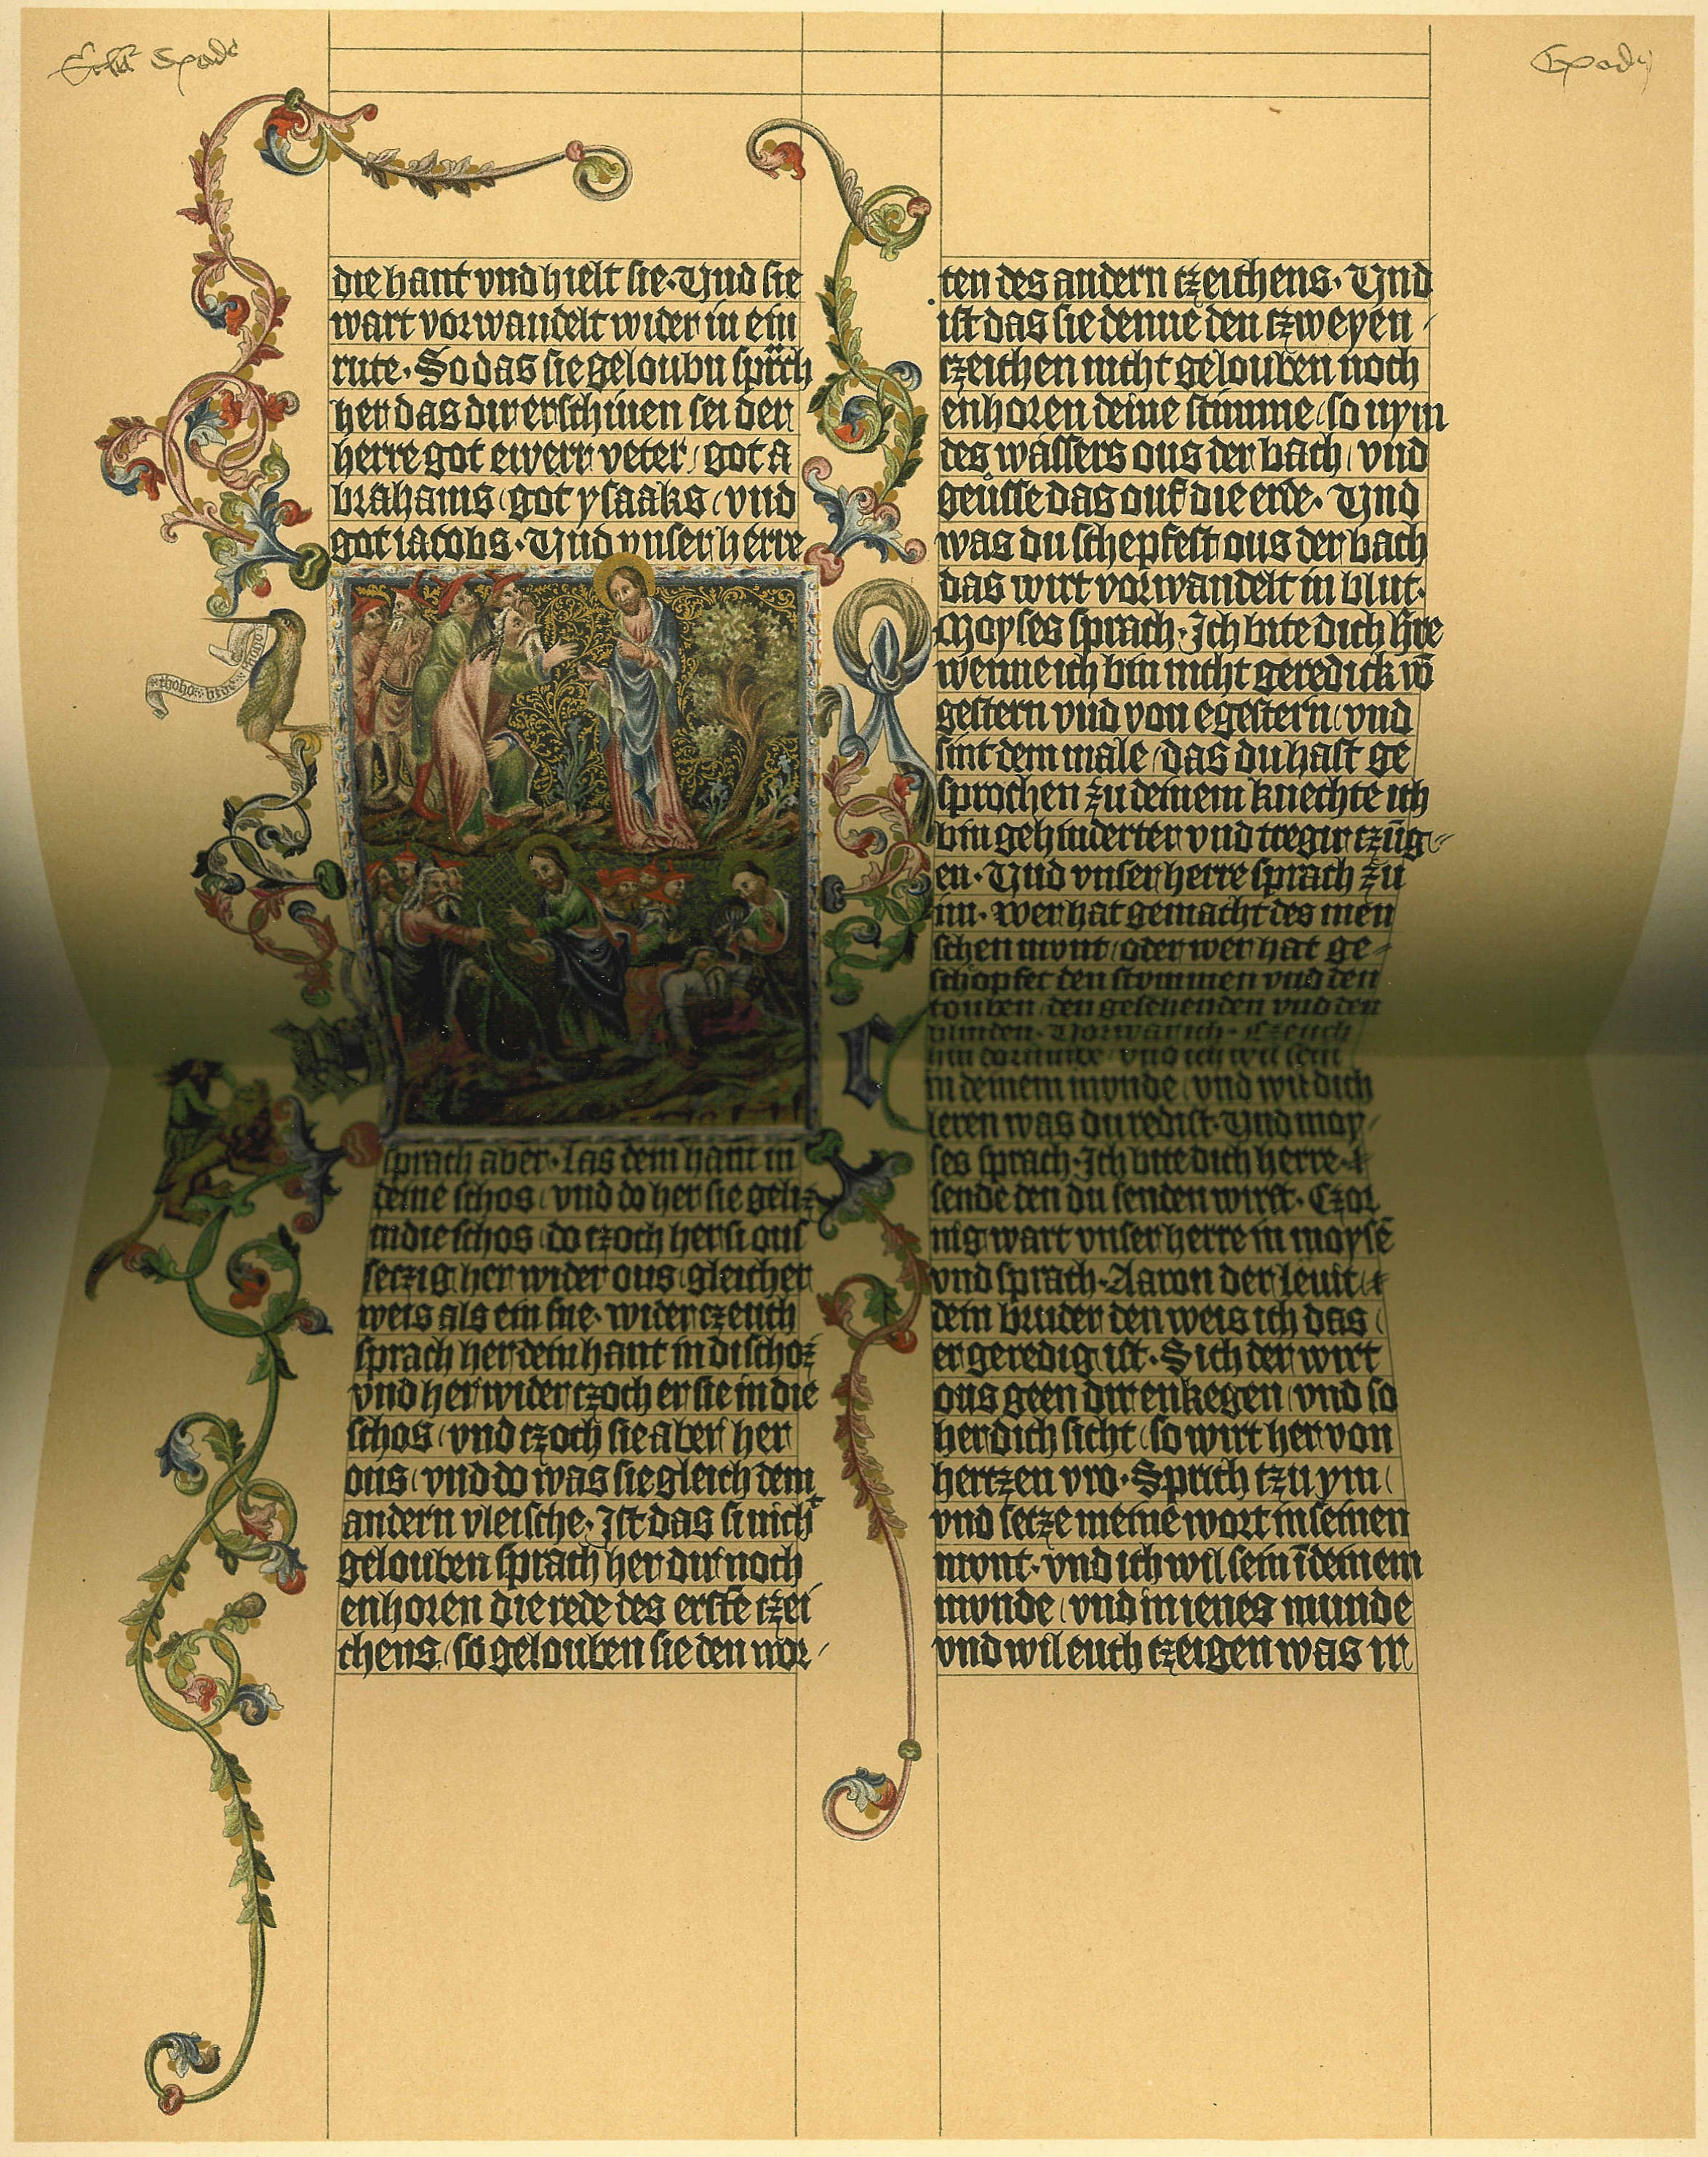 die hant vnd hielt sie. Vnd sie
wart vorwandelt wider in ein
rute. So das sie geloubn sprich
her das dir erschinen sei der
herre got ewerr veter, got a
brahams, got ysaaks, vnd
got iacobs. Vnd vnser herre
sprach aber. las dein hant in
deine schos, vnd do her sie
in die schos, do czoch her si ous
her wider ous, gleicher
weis als ein sne. wider czeuch
sprach her dein hant in di schoz
vnd her wider czoch er sie in die
schos, vnd czoch sie aber her
ous, vnd do was sie gleich dem
andern vleische. Ist das si nicht
gelouben sprach her dir noch
enhoren die rede des erste czei
chens, so gelouben sie den wor
ten des andern czeichens. Vnd
ist das sie denne den czweyen
czeichen nicht gelouben noch
enhoren deine stimme, so nym
des wassers ous der bach, vnd
geusse das ouf die erde. Vnd
was du schepfest ous der bach
das wirt vorwandelt in blut.
Moyses sprach. Ich bite dich hre
wenne ich bin nicht geredick vō
gestern vnd von egestern, vnd
sint dem male, das du hast ge
sprochen zu deinem knechte ich
bin gehinderter vnd tregir czūg
en. Vnd vnser herre sprach zu
im. wer hat gemacht des men
schen mont, oder wer hat ge
schopfet den stommen vnd den
touben, den gesehenden vnd den
blinden. vnd ich wil sein
in deinem monde, vnd wil dich
leren was du redist. Vnd moy
ses sprach. Ich bite dich herre.
sende den du senden wirst. Czor
nig wart vnser herre in moysē
vnd sprach. Aaron der leuit,
dein bruder den weis ich das,
er geredig ist. Sich der wirt
ous geen dir enkegen, vnd so
her dich sicht, so wirt her von
hertzen vro. Sprich tzu ym,
vnd secze meine wort in seinen
mont. vnd ich wil sein ī deinem
monde, vnd in ienes munde
vnd wil euch czeigen was ir